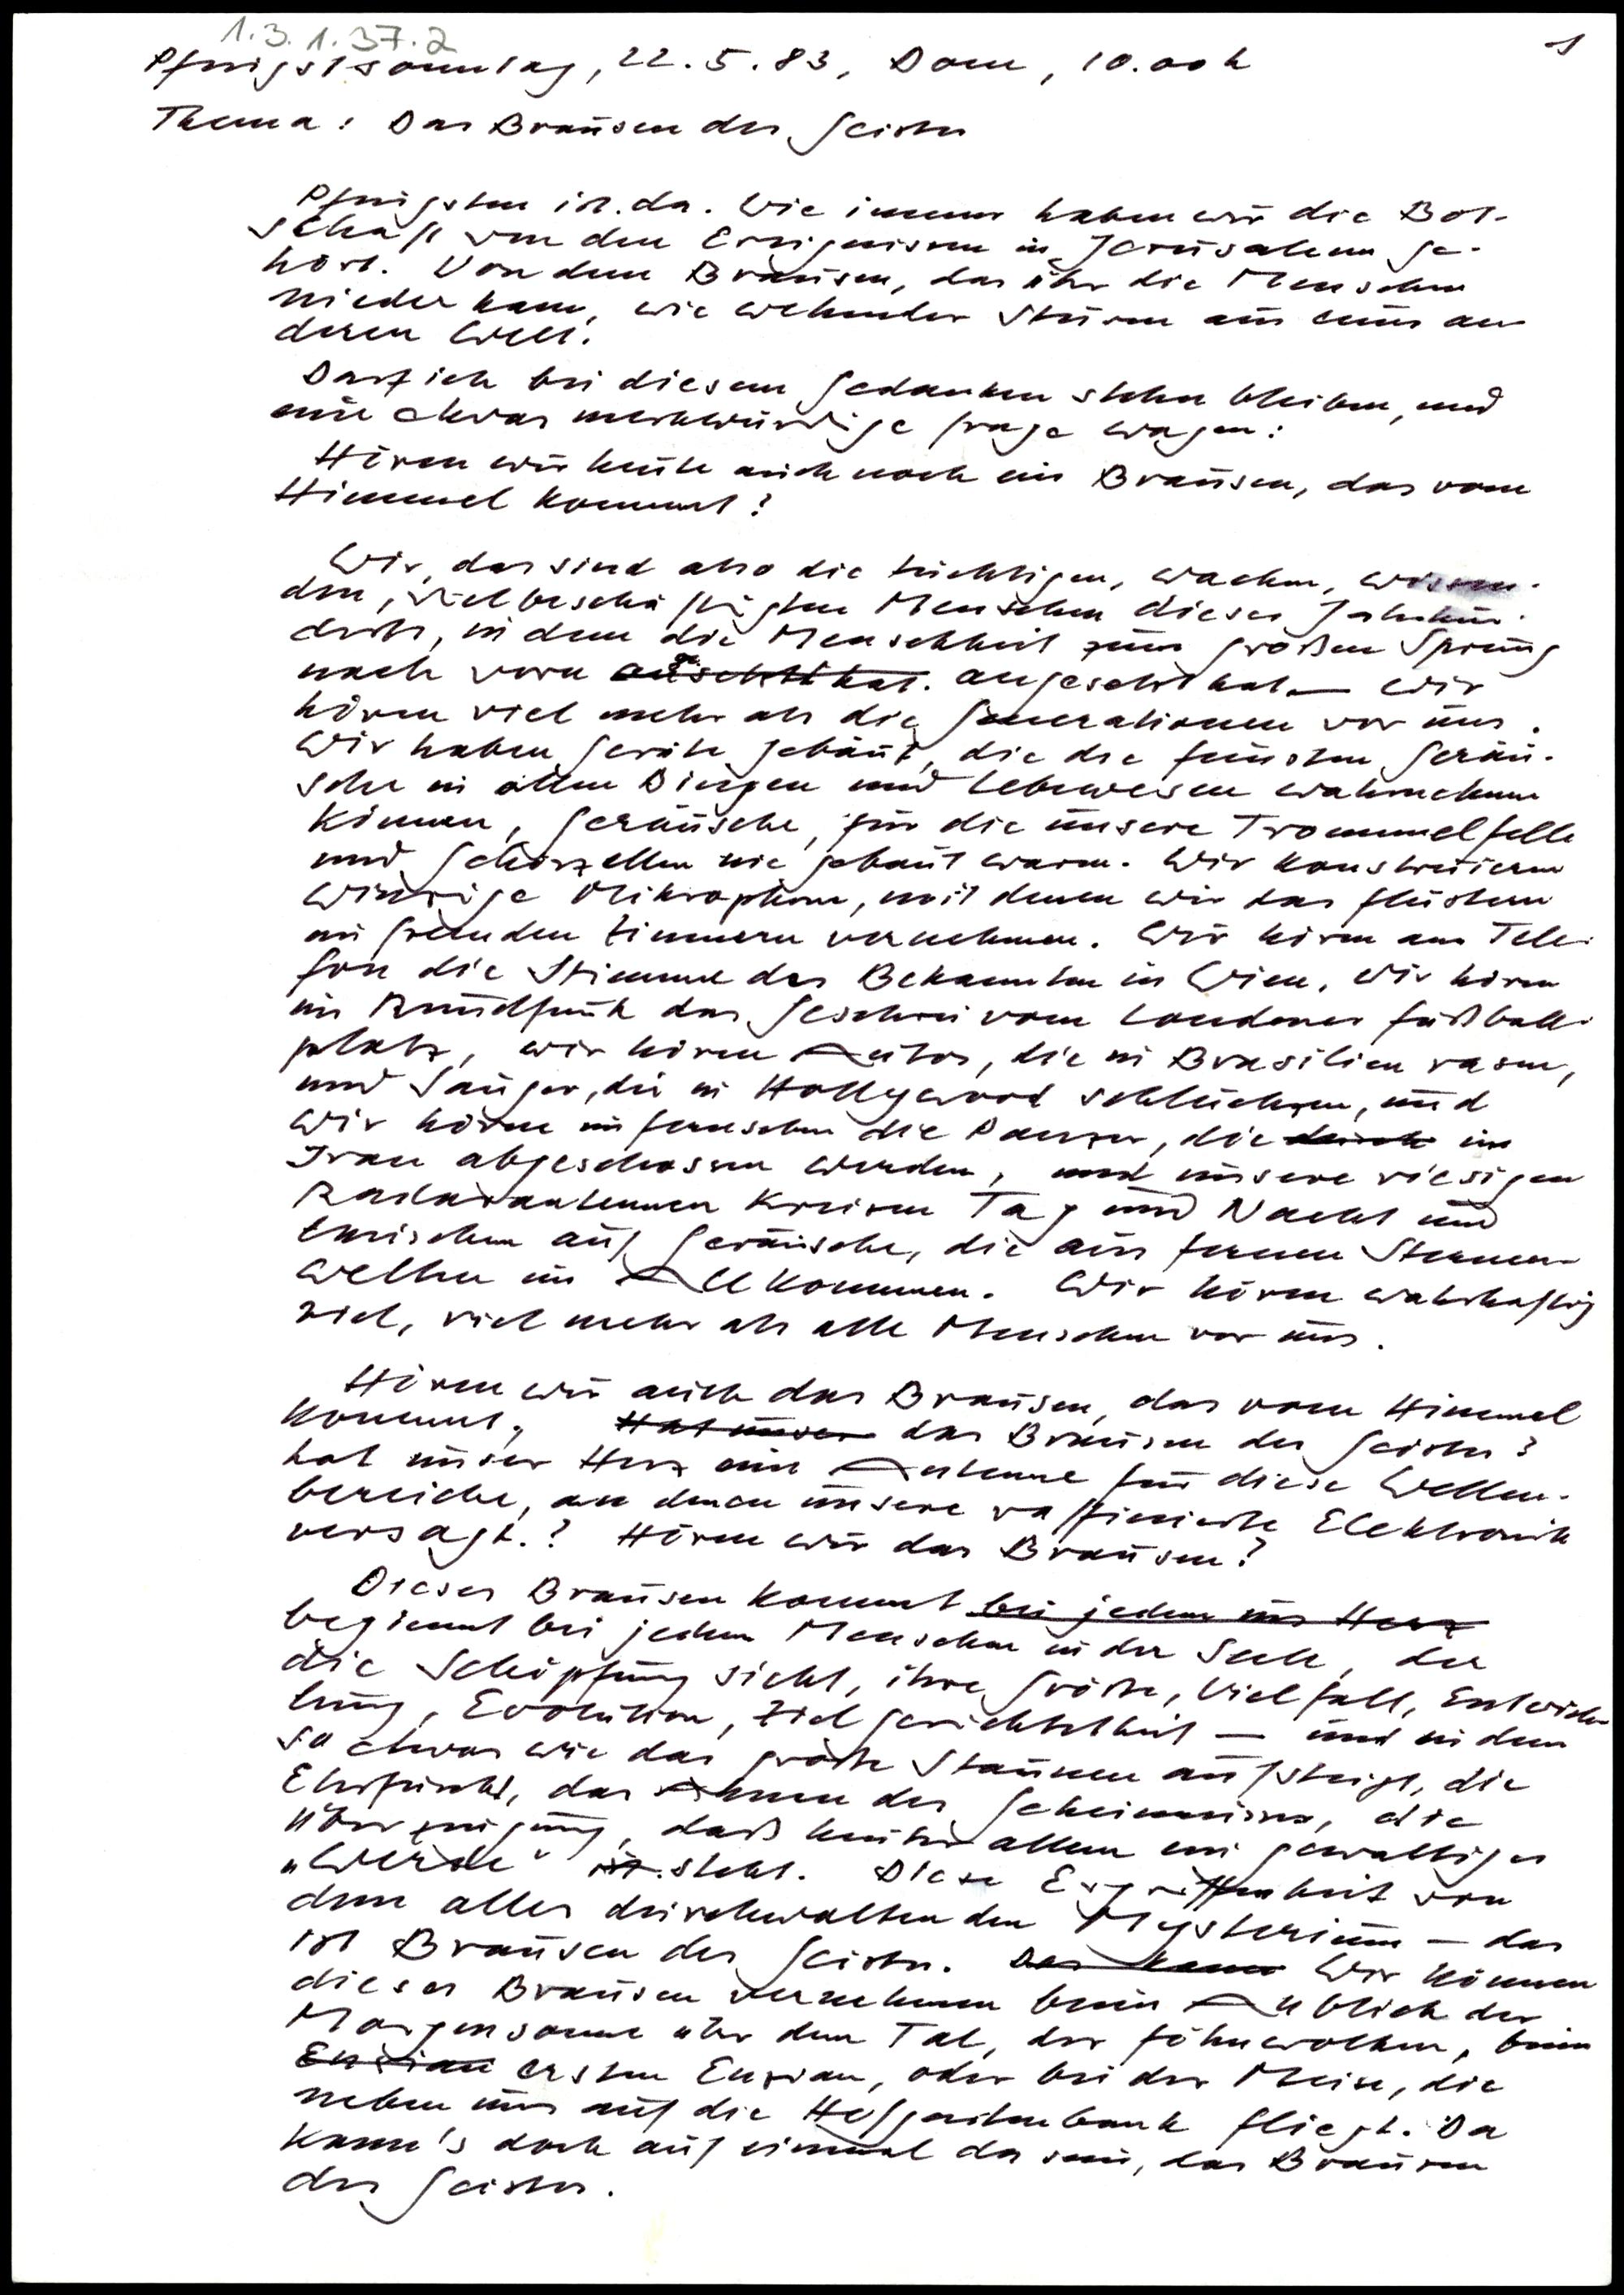 1.3.1.37.2
1
Pfingstsonntag, 22.5.83, Dom, 10.00 h
Thema: Das Brausen des Geistes
Pfingsten ist da. Wie immer haben wir die Bot-
schaft von den Ereignissen in Jerusalem ge-
hört. Von dem Brausen, das über die Menschen
niederkam, wie wehender Sturm aus einer an-
deren Welt.
Darf ich bei diesem Gedanken stehen bleiben, und
eine etwas merkwürdige Frage wagen:
Hören wir heute auch noch ein Brausen, das vom
Himmel kommt?
Wir, das sind also die tüchtigen, wachen, wissen-
den, vielbeschäftigten Menschen dieses Jahrhun-
derts, in dem die Menschheit zum großen Sprung
nach vorn angesetzt hat. angesetzt hat – Wir
hören viel mehr als die Generationen vor uns.
Wir haben Geräte gebaut, die die feinsten Geräu-
sche in allen Dingen und Lebewesen wahrnehmen
können, Geräusche, für die unsere Trommelfelle
und Gehörzellen nie gebaut waren. Wir konstruieren
winzige Mikrophone, mit denen wir das Flüstern
in fremden Zimmern vernehmen. Wir hören am Tele-
fon die Stimme des Bekannten in Wien, wir hören
im Rundfunk das Geschrei vom Londoner Fußball-
platz, wir hören Autos, die in Brasilien rasen,
und Sänger, die in Hollywood schluchzen, und
wir hören im Fernsehen die Panzer, die durch im
Iran abgeschossen werden, und unsere riesigen
Radarantennen kreisen Tag und Nacht und
lauschen auf Geräusche, die aus fernen Sternen-
welten im All kommen. Wir hören wahrhaftig
viel, viel mehr als alle Menschen vor uns.
Hören wir auch das Brausen, das vom Himmel
kommt, Hat unser das Brausen des Geistes?
hat unser Herz eine Antenne für diese Wellen-
bereiche, an denen unsere raffinierte Elektronik
versagt.? Hören wir das Brausen?
Dieses Brausen kommt bei jedem ins Herz
beginnt bei jedem Menschen in der Seele, der
die Schöpfung sieht, ihre Größe, Vielfalt, Entwick-
lung, Evolution, Zielgerichtetheit – und in dem
so etwas wie das große Staunen aufsteigt, die
Ehrfurcht, das Ahnen des Geheimnisses, die
Überzeugung, daß hinter allem ein gewaltiges
„Werde" ist. steht. Diese Ergriffenheit von
dem alles durchwaltenden Mysterium – das
ist Brausen des Geistes. Das kann Wir können
dieses Brausen vernehmen beim Anblick der
Morgensonne über dem Tal, der Föhnwolken, beim
Enzian ersten Enzian, oder bei der Meise, die
neben uns auf die Hofgartenbank fliegt. Da
kann's doch auf einmal da sein, das Brausen
des Geistes.